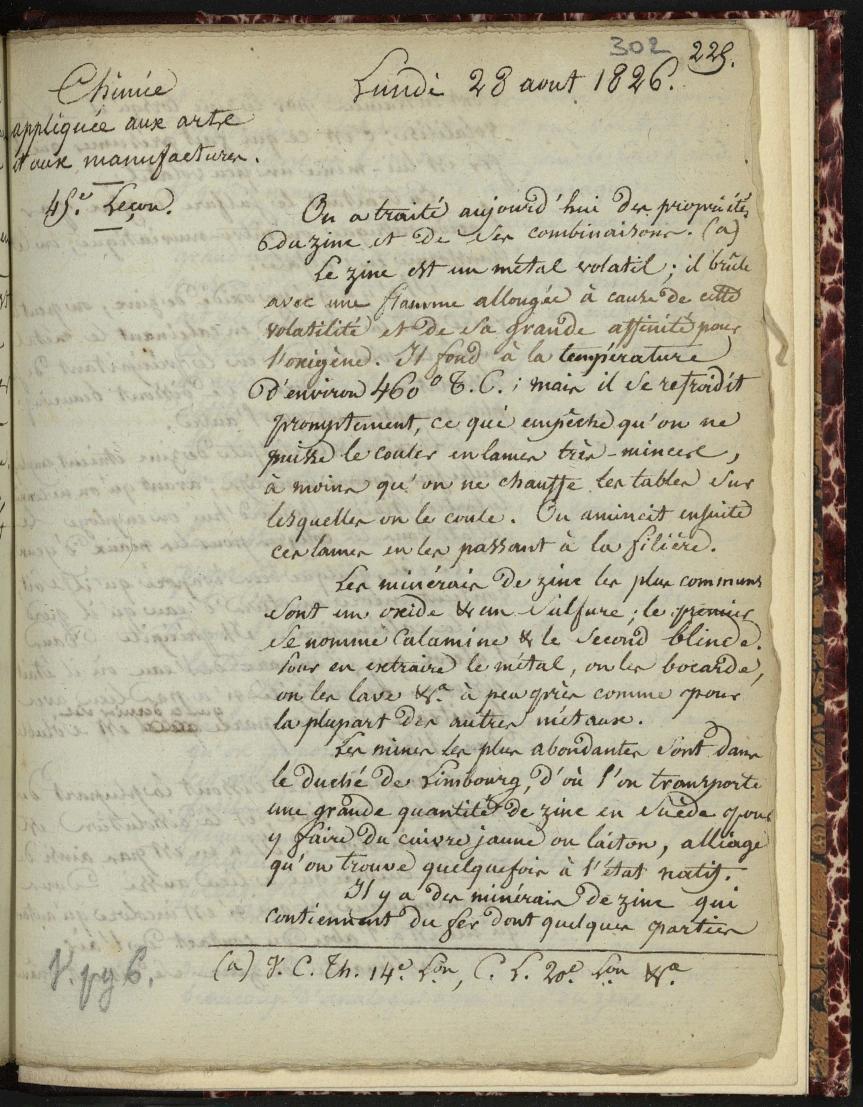 302 225.
Lundi 28 aout 1826.
Chimie
appliquée aux arts
et aux manufactures.
45.e Leçon.
On a traité aujourd'hui des propriétés
du zinc et de ses combinaisons. (a)
Le zinc est un métal volatil ; il brûle
avec une flamme allongée à cause de cette
volatilité et de sa grande affinité pour
l'oxigène. Il fond à la température
d'environ 460° T. C. ; mais il se refroidit
promptement, ce qui empêche qu'on ne
puisse le couler en lames très-minces,
à moins qu'on ne chauffe les tables sur
lesquelles on le coule. On amincit ensuite
ces lames en les passant à la filière.
Les minérais de zinc les plus communs
sont un oxide & un sulfure ; le premier
se nomme calamine & le second blinde.
Pour en extraire le métal, on les bocarde,
on les lave &a. à peu près comme pour
la plupart des autres métaux.
Les mines les plus abondantes sont dans
le duché de Limbourg, d'où l'on transporte
une grande quantité de zinc en Suède pour
y faire du cuivre jaune ou laiton, alliage
qu'on trouve quelquefois à l'état natif.
Il y a des minérais de zinc qui
contiennent du fer dont quelques parties
(a) V. C. Th. 14e. Lon, C. L. 20e. Lon &a.
V. pg 6.